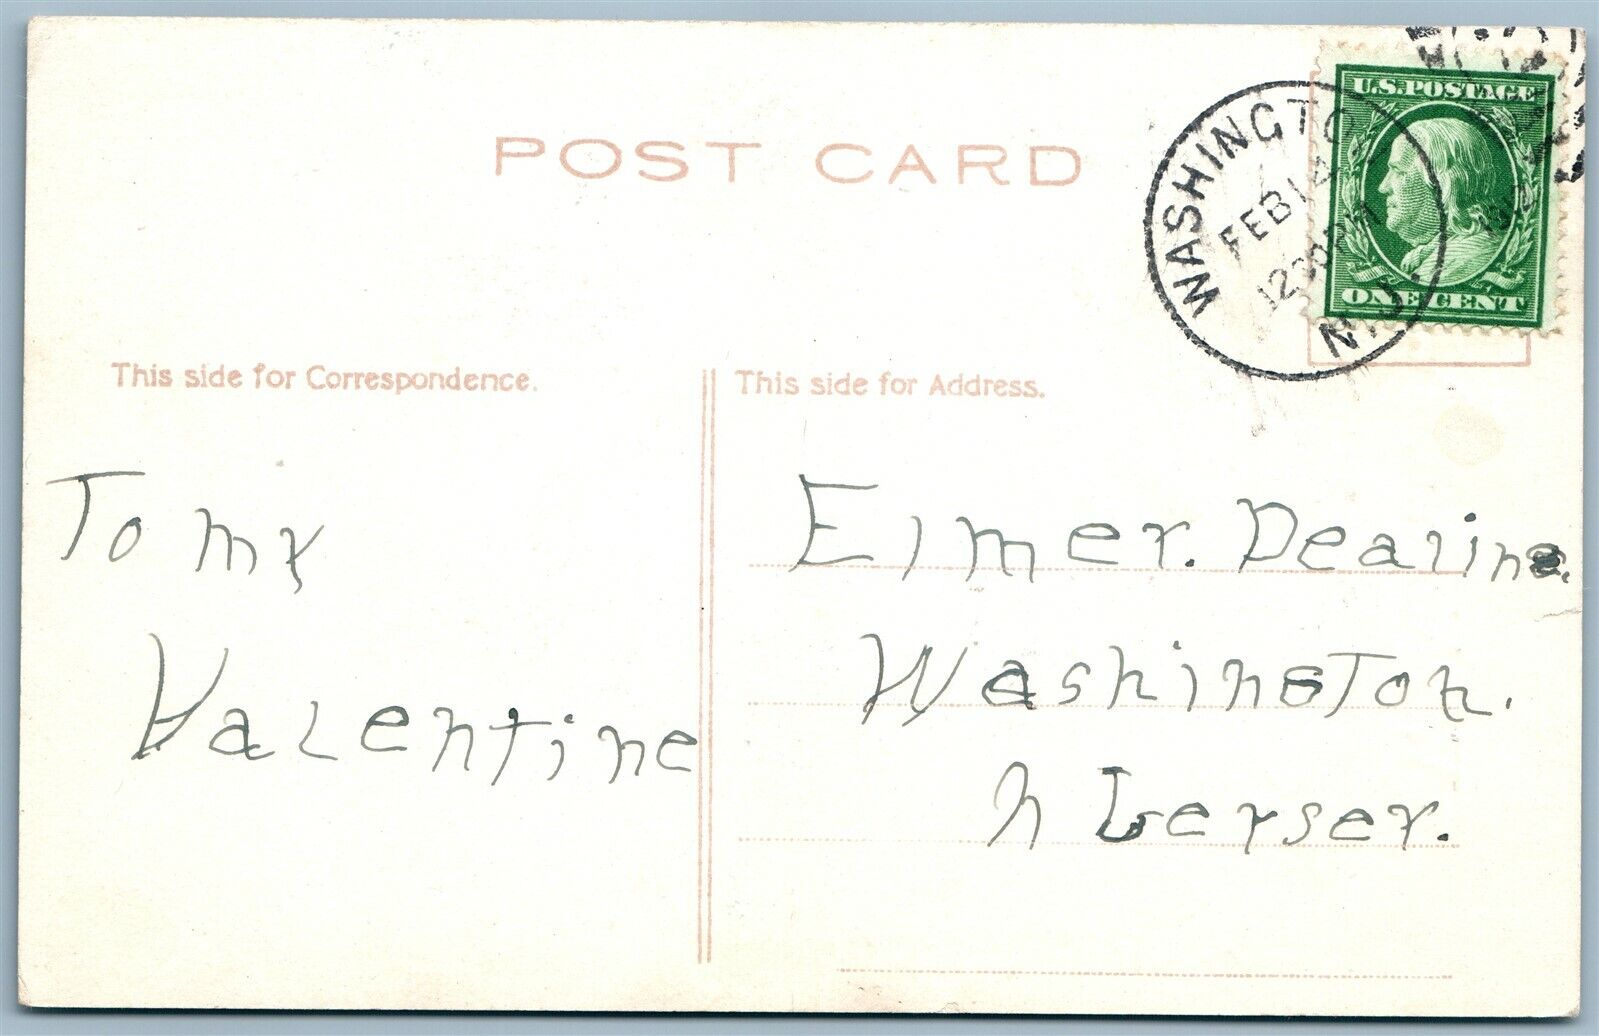 POST CARD
WASHINGTON
FEB 14
12 30 PM
1912
N.J.
U.S. POSTAGE
ONE CENT
This side for Correspondence.
This side for Address.
To my
Valentine
Elmer. Dearine.
Washington.
N Jerser.